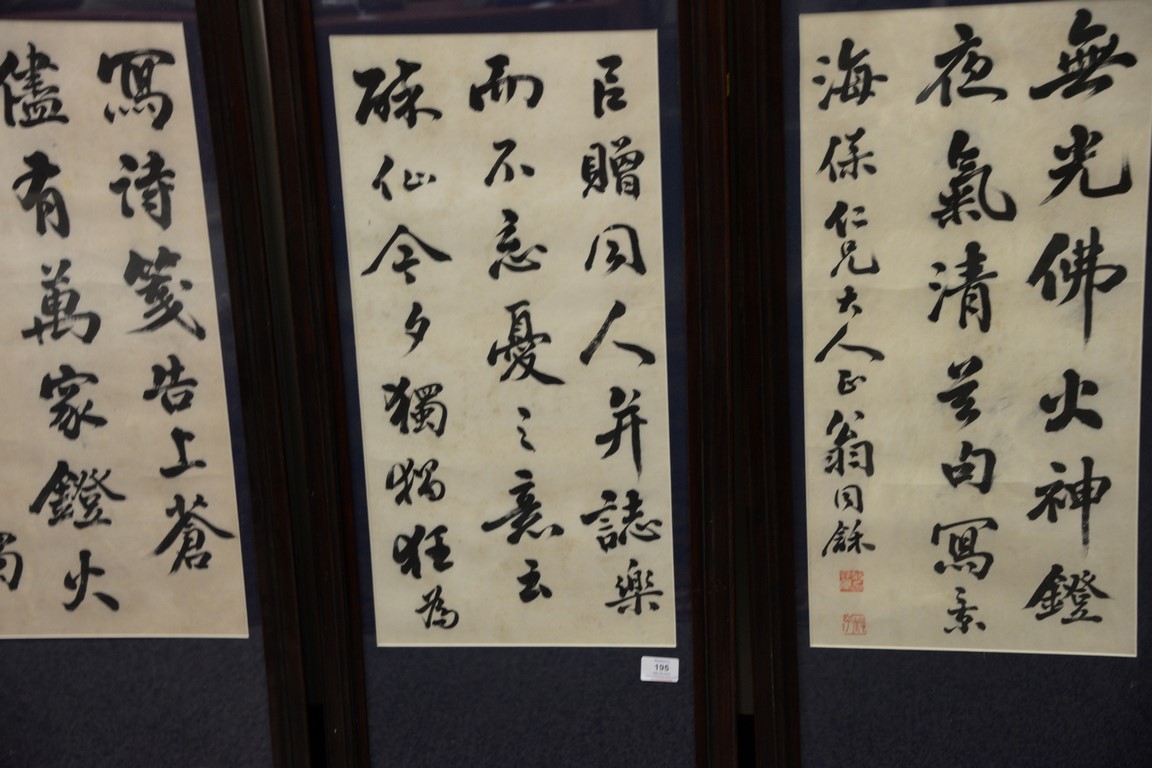 無光佛火神鐙
夜氣清
句寫景
海保仁兄大人正翁同龢
目贈同人并誌樂
而不忘憂之意云
酥仙今夕獨獨狂為
195
寫詩箋告上蒼
儘有萬家鐙火